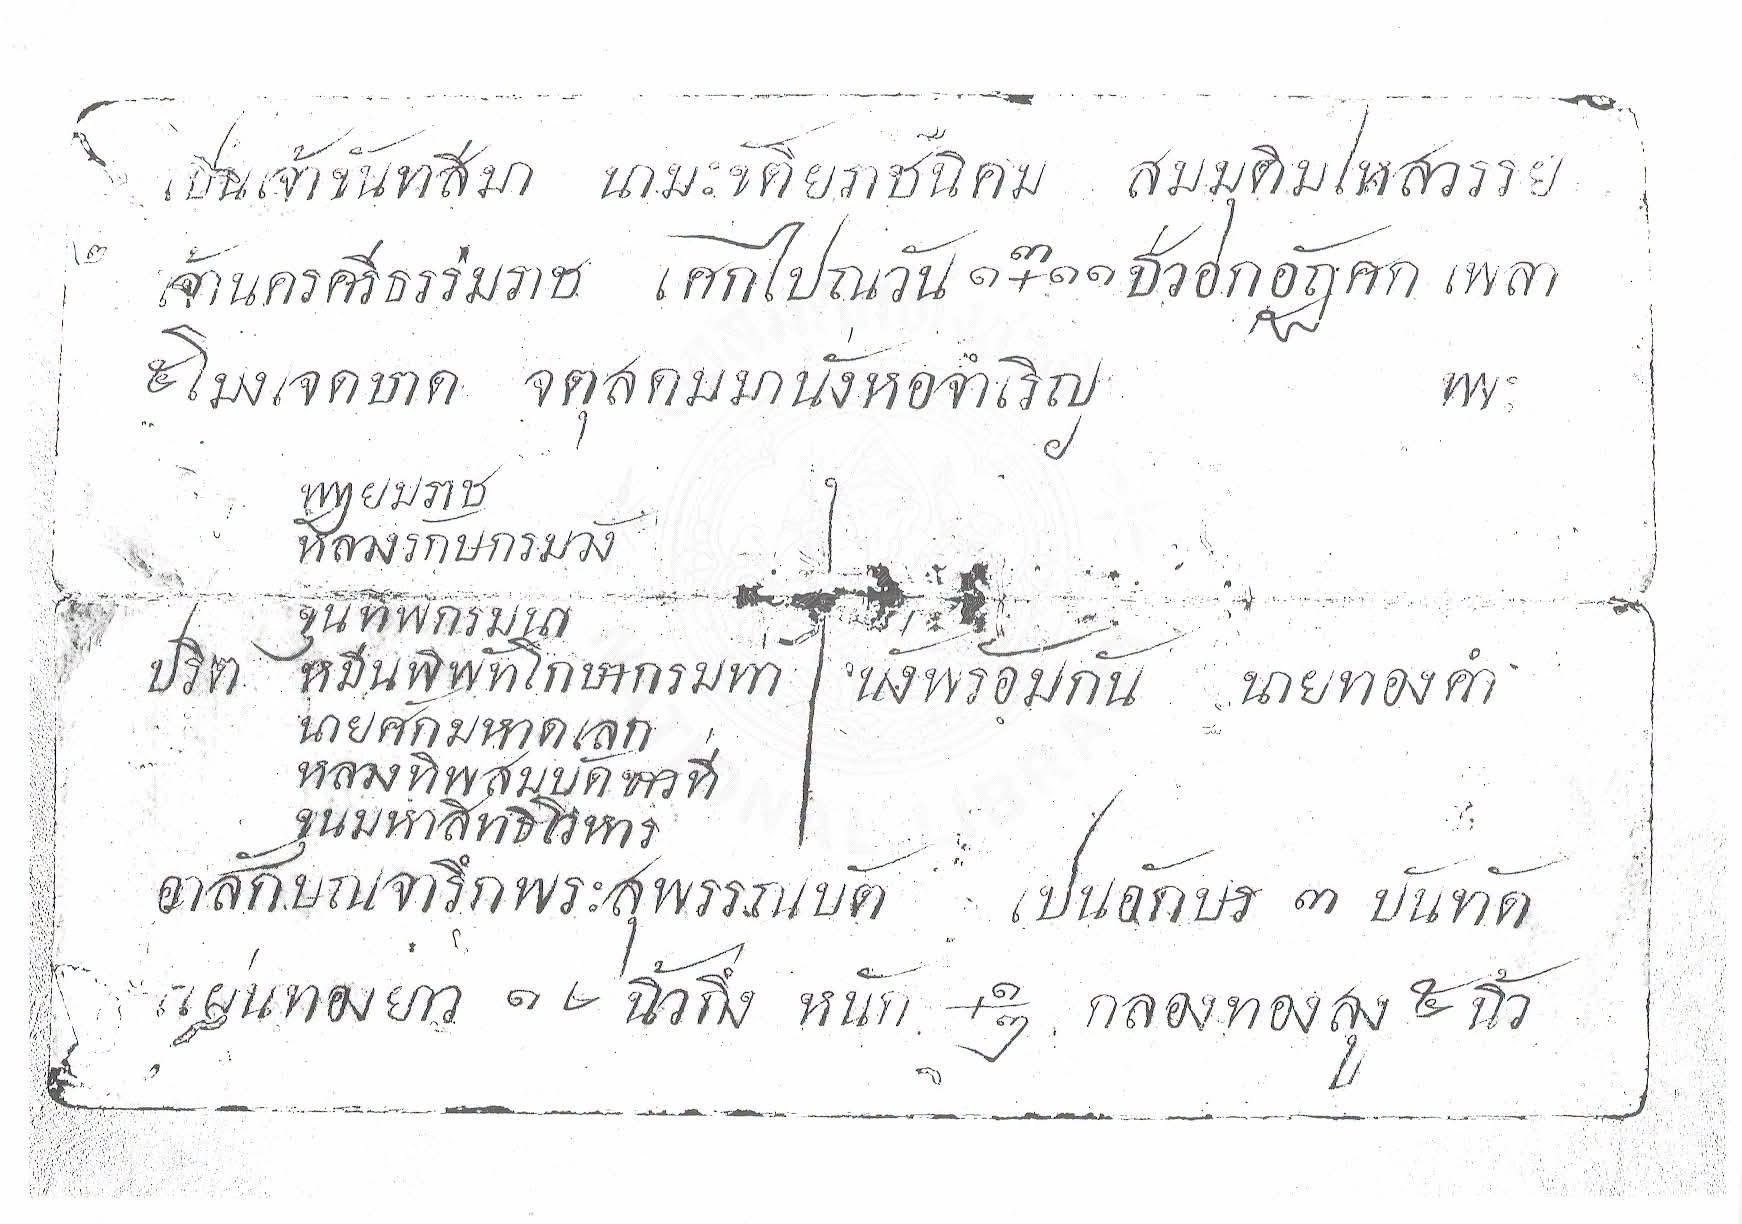 เปนเจ้าขันทสีมา นามะขัติยราชนิคม สมมุติมไหสวรรย
๒
เจ้านครศรีธรร่มราช เศกไปณวัน ๑ ๓ ๑๑ ชั่วอกอัฏศก เพลา
๕ โมงเจดบาด จตุสดมมานั่งหอจำเริญ พระ
พญายมราช
หลวงรักษกรมวัง
ขุนทพกรมนา
ปริต หมีนพิพัทโกษากรมทา นั่งพรอมกัน นายทองคำ
นายศักมหาดเลก
หลวงทิพสมบัดชาวที่
ขุนมหาสิทธิโวหาร
อาลักษณจารึกพระสุพรรณบัต เปนอักษร ๓ บันทัด
แผ่นทองยาว ๑๒ นิ้วกึ่ง หนัก ๑ ๓ กลองทองสูง ๕ นิ้ว